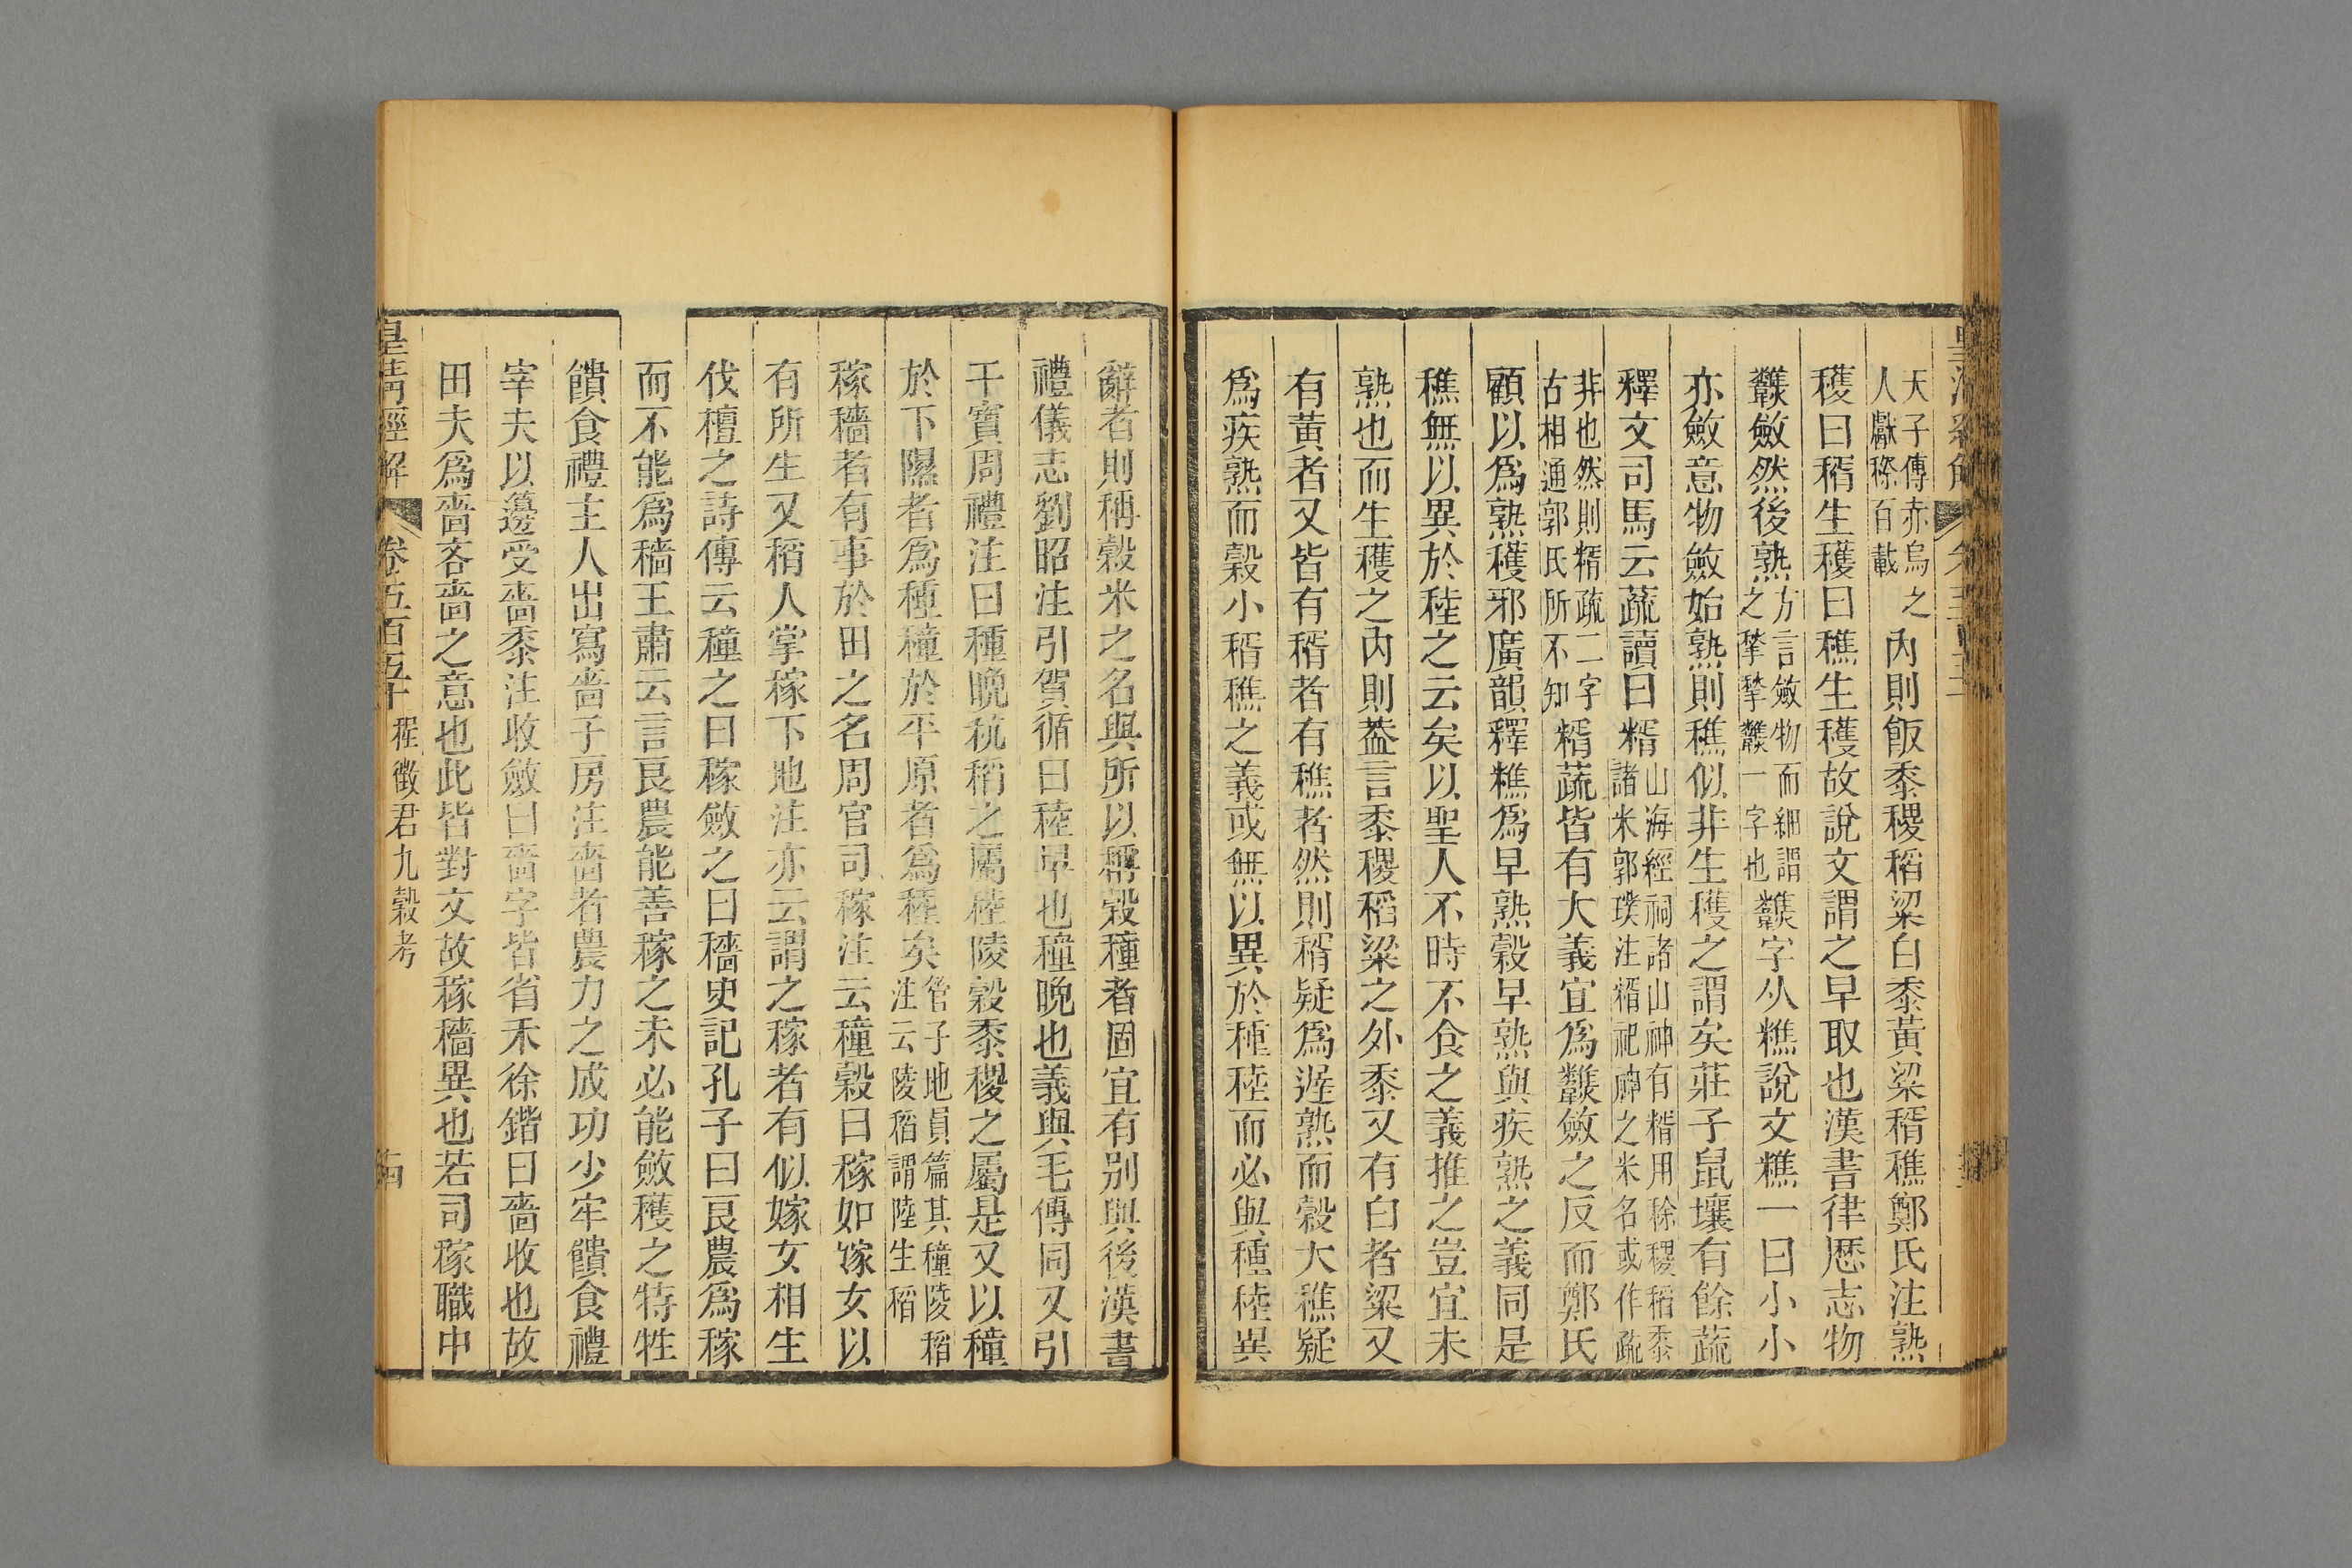 天子傳赤烏之人獻穄百載內則飯黍稷稻粱白黍黃粱稰穛鄭氏注熟
穫曰稰生穫曰穛生穫故說文謂之早取也漢書律厯志物
䆋斂然後熟方言斂物而細謂之揫揫䆋一字也䆋字从糕說文糕一曰小小
亦斂意物斂始熟則穛似非生穫之謂矣莊子鼠壤有餘蔬
釋文司馬云蔬讀曰糈山海經祠諸山神有糈用稌稷稻黍諸米郭璞注糈祀神之米名或作疏
非也然則糈疏二字古相通郭氏所不知糈蔬皆有大義宜爲䆋斂之反而鄭氏
顧以爲熟穫邪廣韻釋糕爲早熟穀早熟與疾熟之義同是
穛無以異於稑之云矣以聖人不時不食之義推之豈宜未
熟也而生穫之內則葢言黍稷稻粱之外黍又有白者粱又
有黃者又皆有稰者有穛者然則稰疑爲遲熟而穀大穛疑
爲疾熟而穀小稰穛之義或無以異於種稑而必與種稑異
辭者則稱穀米之名與所以稱穀種者固宜有别與後漢書
禮儀志劉昭注引賀循曰稑早也穜晚也義與毛傳同又引
干寶周禮注曰種晚秔稻之屬稑陵穀黍稷之屬是又以穜
於下隰者爲種穜於平原者爲稑矣管子地員篇其穜陵稻注云陵稻謂陸生稻
稼穡者有事於田之名周官司稼注云穜穀曰稼如嫁女以
有所生又稻人掌稼下地注亦云謂之稼者有似嫁女相生
伐檀之詩傳云穜之曰稼斂之曰穡史記孔子曰良農爲稼
而不能爲穡王肅云言良農能善稼之未必能斂穫之特牲
饋食禮主人出寫嗇于房注嗇者農力之成功少牢饋食禮
宰夫以籩受嗇黍注收斂曰嗇字皆省禾徐鍇曰嗇收也故
田夫爲嗇吝嗇之意也此皆對文故稼穡異也若司稼職中
皇清經解 卷五百五十 程徵君九穀考